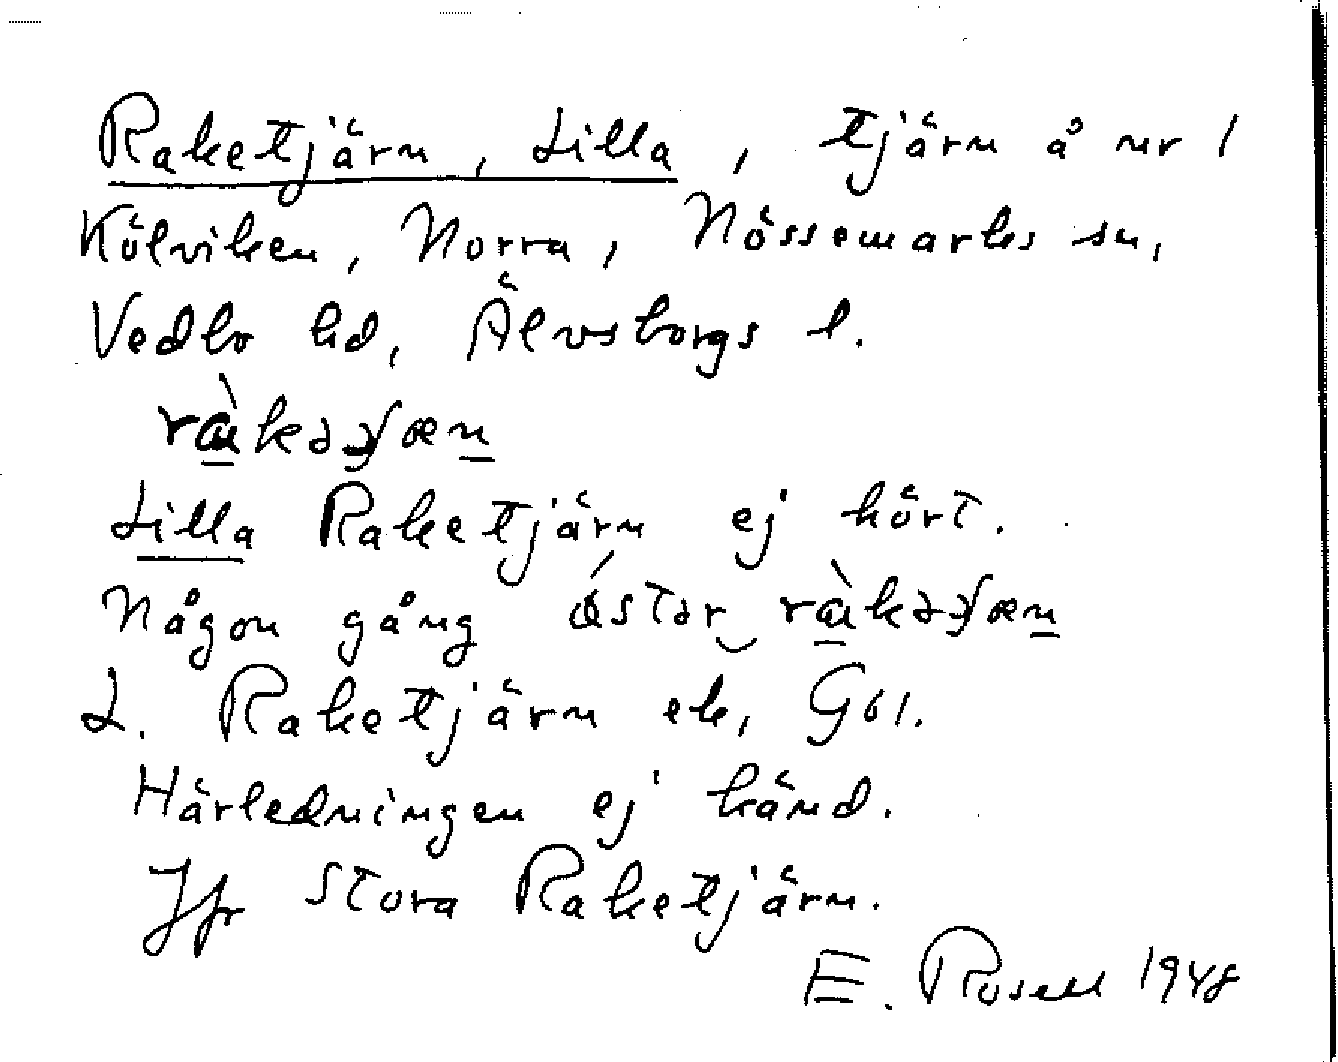 Raketjärn, Lilla, tjärn å nr 1
Kölviken, Norra, Nössemarks sn,
Vedbo hd, Älvsborgs l.
Lilla Raketjärn ej hört.
Någon gång
L. Raketjärn ek, GSI.
Härledningen ej känd.
Jfr Stora Raketjärn.
E. Rosell 1948